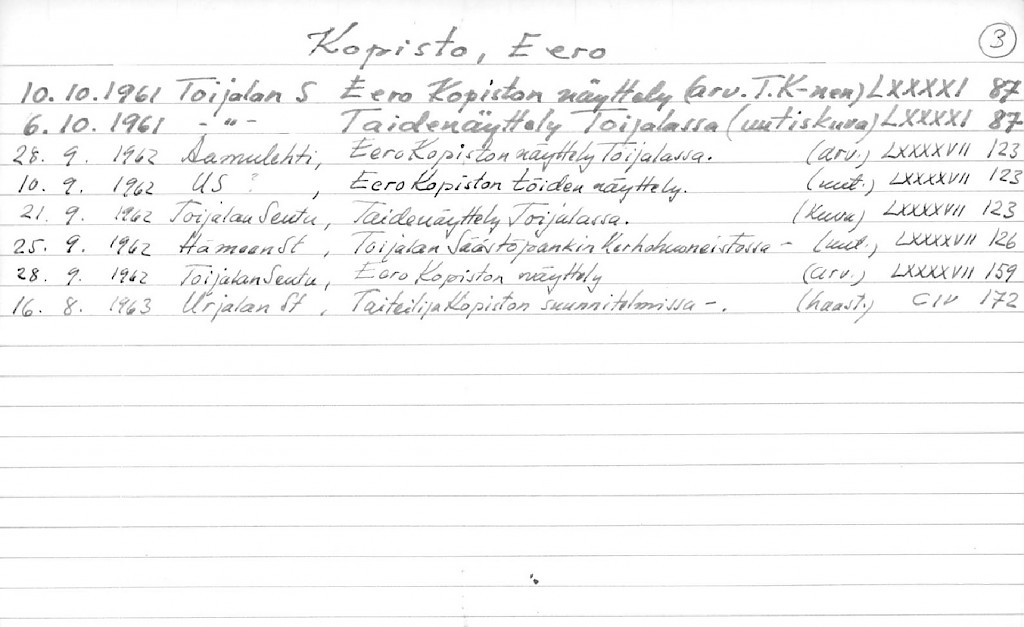 Kopisto, Eero 3
10.10.1961 Toijalan S Eero Kopiston näyttely (arv. T.K-nen) LXXXXI 87
6.10.1961 -"- Taidenäyttely Toijalassa (uutiskuva) LXXXXI 87
28. 9. 1962 Aamulehti, Eero Kopiston näyttely Toijalassa. (arv.) LXXXXVII 123
10. 9. 1962 US ? , Eero Kopiston töiden näyttely. (uut.) LXXXXVII 123
21. 9. 1962 Toijalan Seutu, Taidenäyttely Toijalassa. (kuva) LXXXXVII 123
25. 9. 1962 HämeenSt , Toijalan Säästöpankin Kerhohuoneistossa - (uut.) LXXXXVII 126
28. 9. 1962 Toijalan Seutu, Eero Kopiston näyttely (arv.) LXXXXVII 159
16. 8. 1963 Urjalan St , Taiteilija Kopiston suunnitelmissa -. (haast.) CIV 172